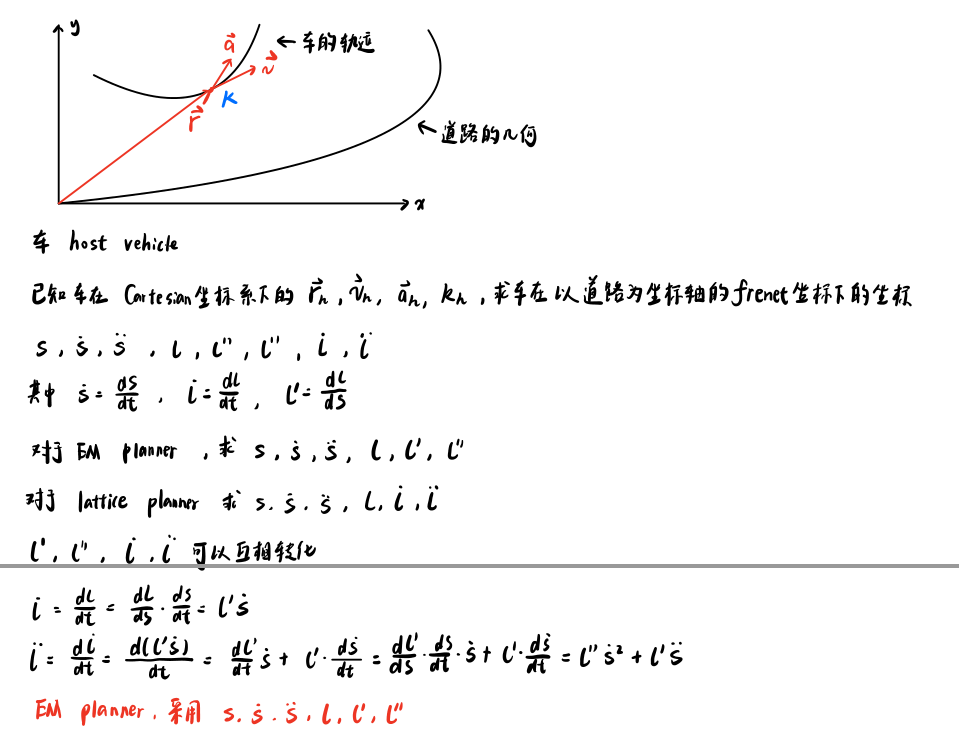 y
a⃗
← 车的轨迹
v⃗
k
r⃗
← 道路的几何
x
车 host vehicle
已知车在 Cartesian坐标系下的 r⃗ₕ, v⃗ₕ, a⃗ₕ, kₕ, 求车在以道路为坐标轴的frenet坐标下的坐标
s, ṡ, s̈, l, l'', l'', l̇, l̈
其中 ṡ = ds/dt, l̇ = dl/dt, l' = dl/ds
对于 EM planner, 求 s, ṡ, s̈, l, l', l''
对于 lattice planner 求 s. ṡ. s̈, l, l̇, l̈
l', l'', l̇, l̈ 可以互相转化
l̇ = dl/dt = dl/ds · ds/dt = l'ṡ
l̈ = dl̇/dt = d(l'ṡ)/dt = dl'/dt ṡ + l' · dṡ/dt = dl'/ds · ds/dt · ṡ + l' · dṡ/dt = l''ṡ² + l's̈
EM planner. 采用 s. ṡ. s̈, l, l', l''